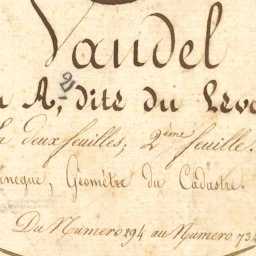 Vandel
n A, dite du Leve
En deux feuilles; 2ème feuille.
ineque, Géomètre du Cadastre.
Du Numero 194 au Numero 734